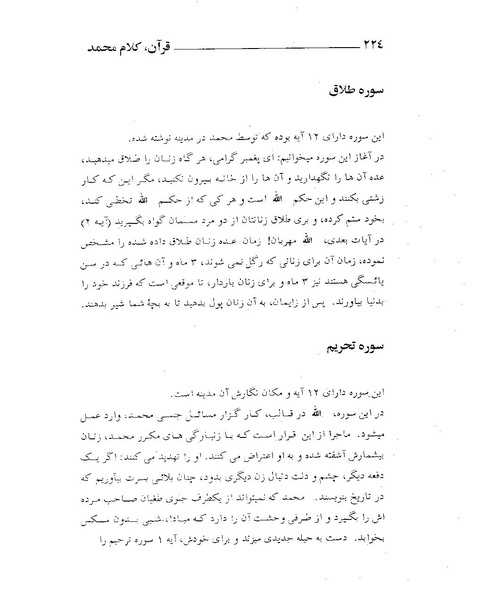 ۲۲٤ قرآن، کلام محمد
سوره طلاق
این سوره دارای ۱۲ آیه بوده که توسط محمد در مدینه نوشته شده.
در آغاز این سوره میخوانیم: ای پغمبر گرامی، هر گاه زنان را طلاق میدهید،
عده آن ها را نگهدارید و آن ها را از خانه بیرون نکنید، مگر این که کار
زشتی بکنند و این حکم الله است و هر کی که از حکم الله تخطی کند،
بخود ستم کرده، و بری طلاق زنانتان از دو مرد مسمان گواه بگیرید (آیه ۲)
در آیات بعدی، الله مهربان! زمان عده زنان طلاق داده شده را مشخص
نموده، زمان آن برای زنانی که رگل نمی شوند، ۳ ماه و آن هائی که در سن
یائسگی هستند نیز ۳ ماه و برای زنان باردار، تا موقعی است که فرزند خود را
بدنیا بیاورند. پس از زایمان، به آن زنان پول بدهید تا به بچهٔ شما شیر بدهند.
سوره تحریم
این سوره دارای ۱۲ آیه و مکان نگارش آن مدینه است.
در این سوره، الله در قالب، کار گزار مسائل جنسی محمد، وارد عمل
میشود. ماجرا از این قرار است که با زنبارگی های مکرر محمد، زنان
بیشمارش آشفته شده و به او اعتراض می کنند. او را تهدید می کنند: اگر یک
دفعه دیگر، چشم و دلت دنبال زن دیگری بدود، چنان بلائی بسرت بیآوریم که
در تاریخ بنویسند. محمد که نمیتواند از یکطرف جلوی طغیان صاحب مرده
اش را بگیرد و از طرفی وحشت آن را دارد که مبادا، شبی بدون سکس
بخوابد. دست به حیله جدیدی میزند و برای خودش، آیه ۱ سوره ترحیم را